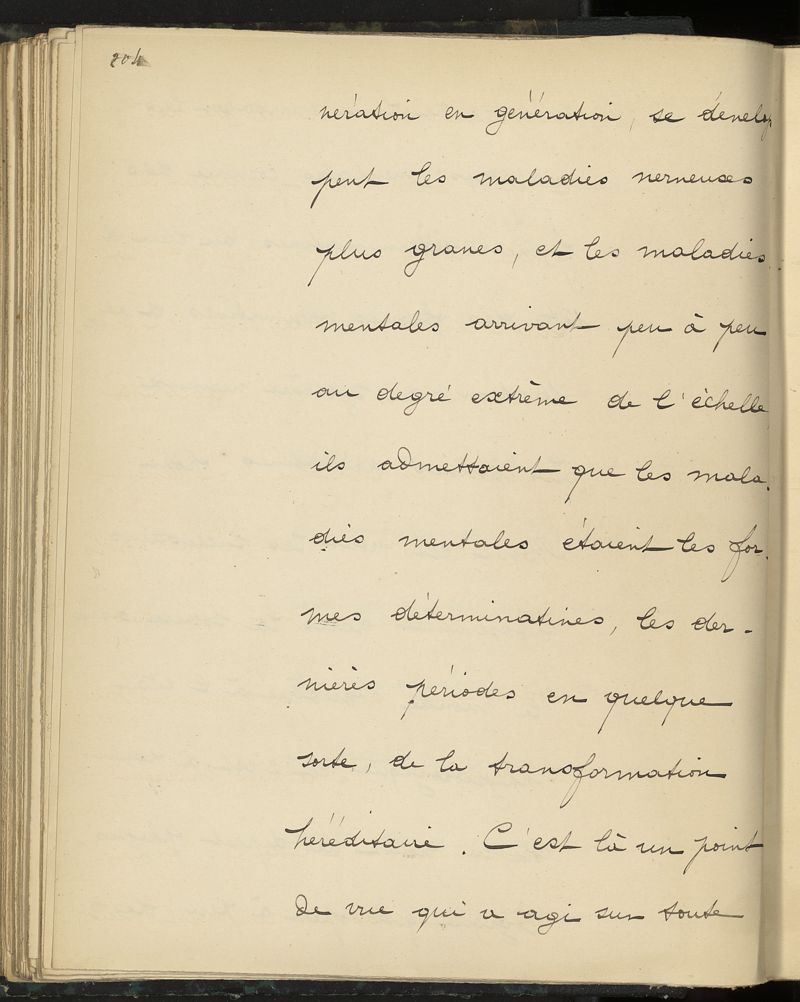 204
nération en génération, se dévelop
pent les maladies nerveuses
plus graves, et les maladies
mentales arrivant peu à peu
au degré extrême de l'échelle,
ils admettaient que les mala-
dies mentales étaient les for-
mes déterminatives, les der-
nières périodes en quelque
sorte, de la transformation
héréditaire. C'est là un point
de vue qui a agi sur toute